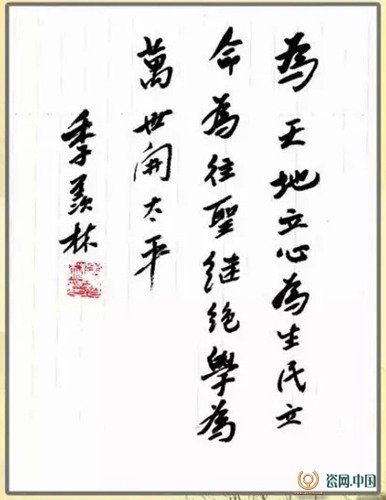 為天地立心為生民立
命為往聖継絶學為
萬世開太平
季羨林
瓷网.中国